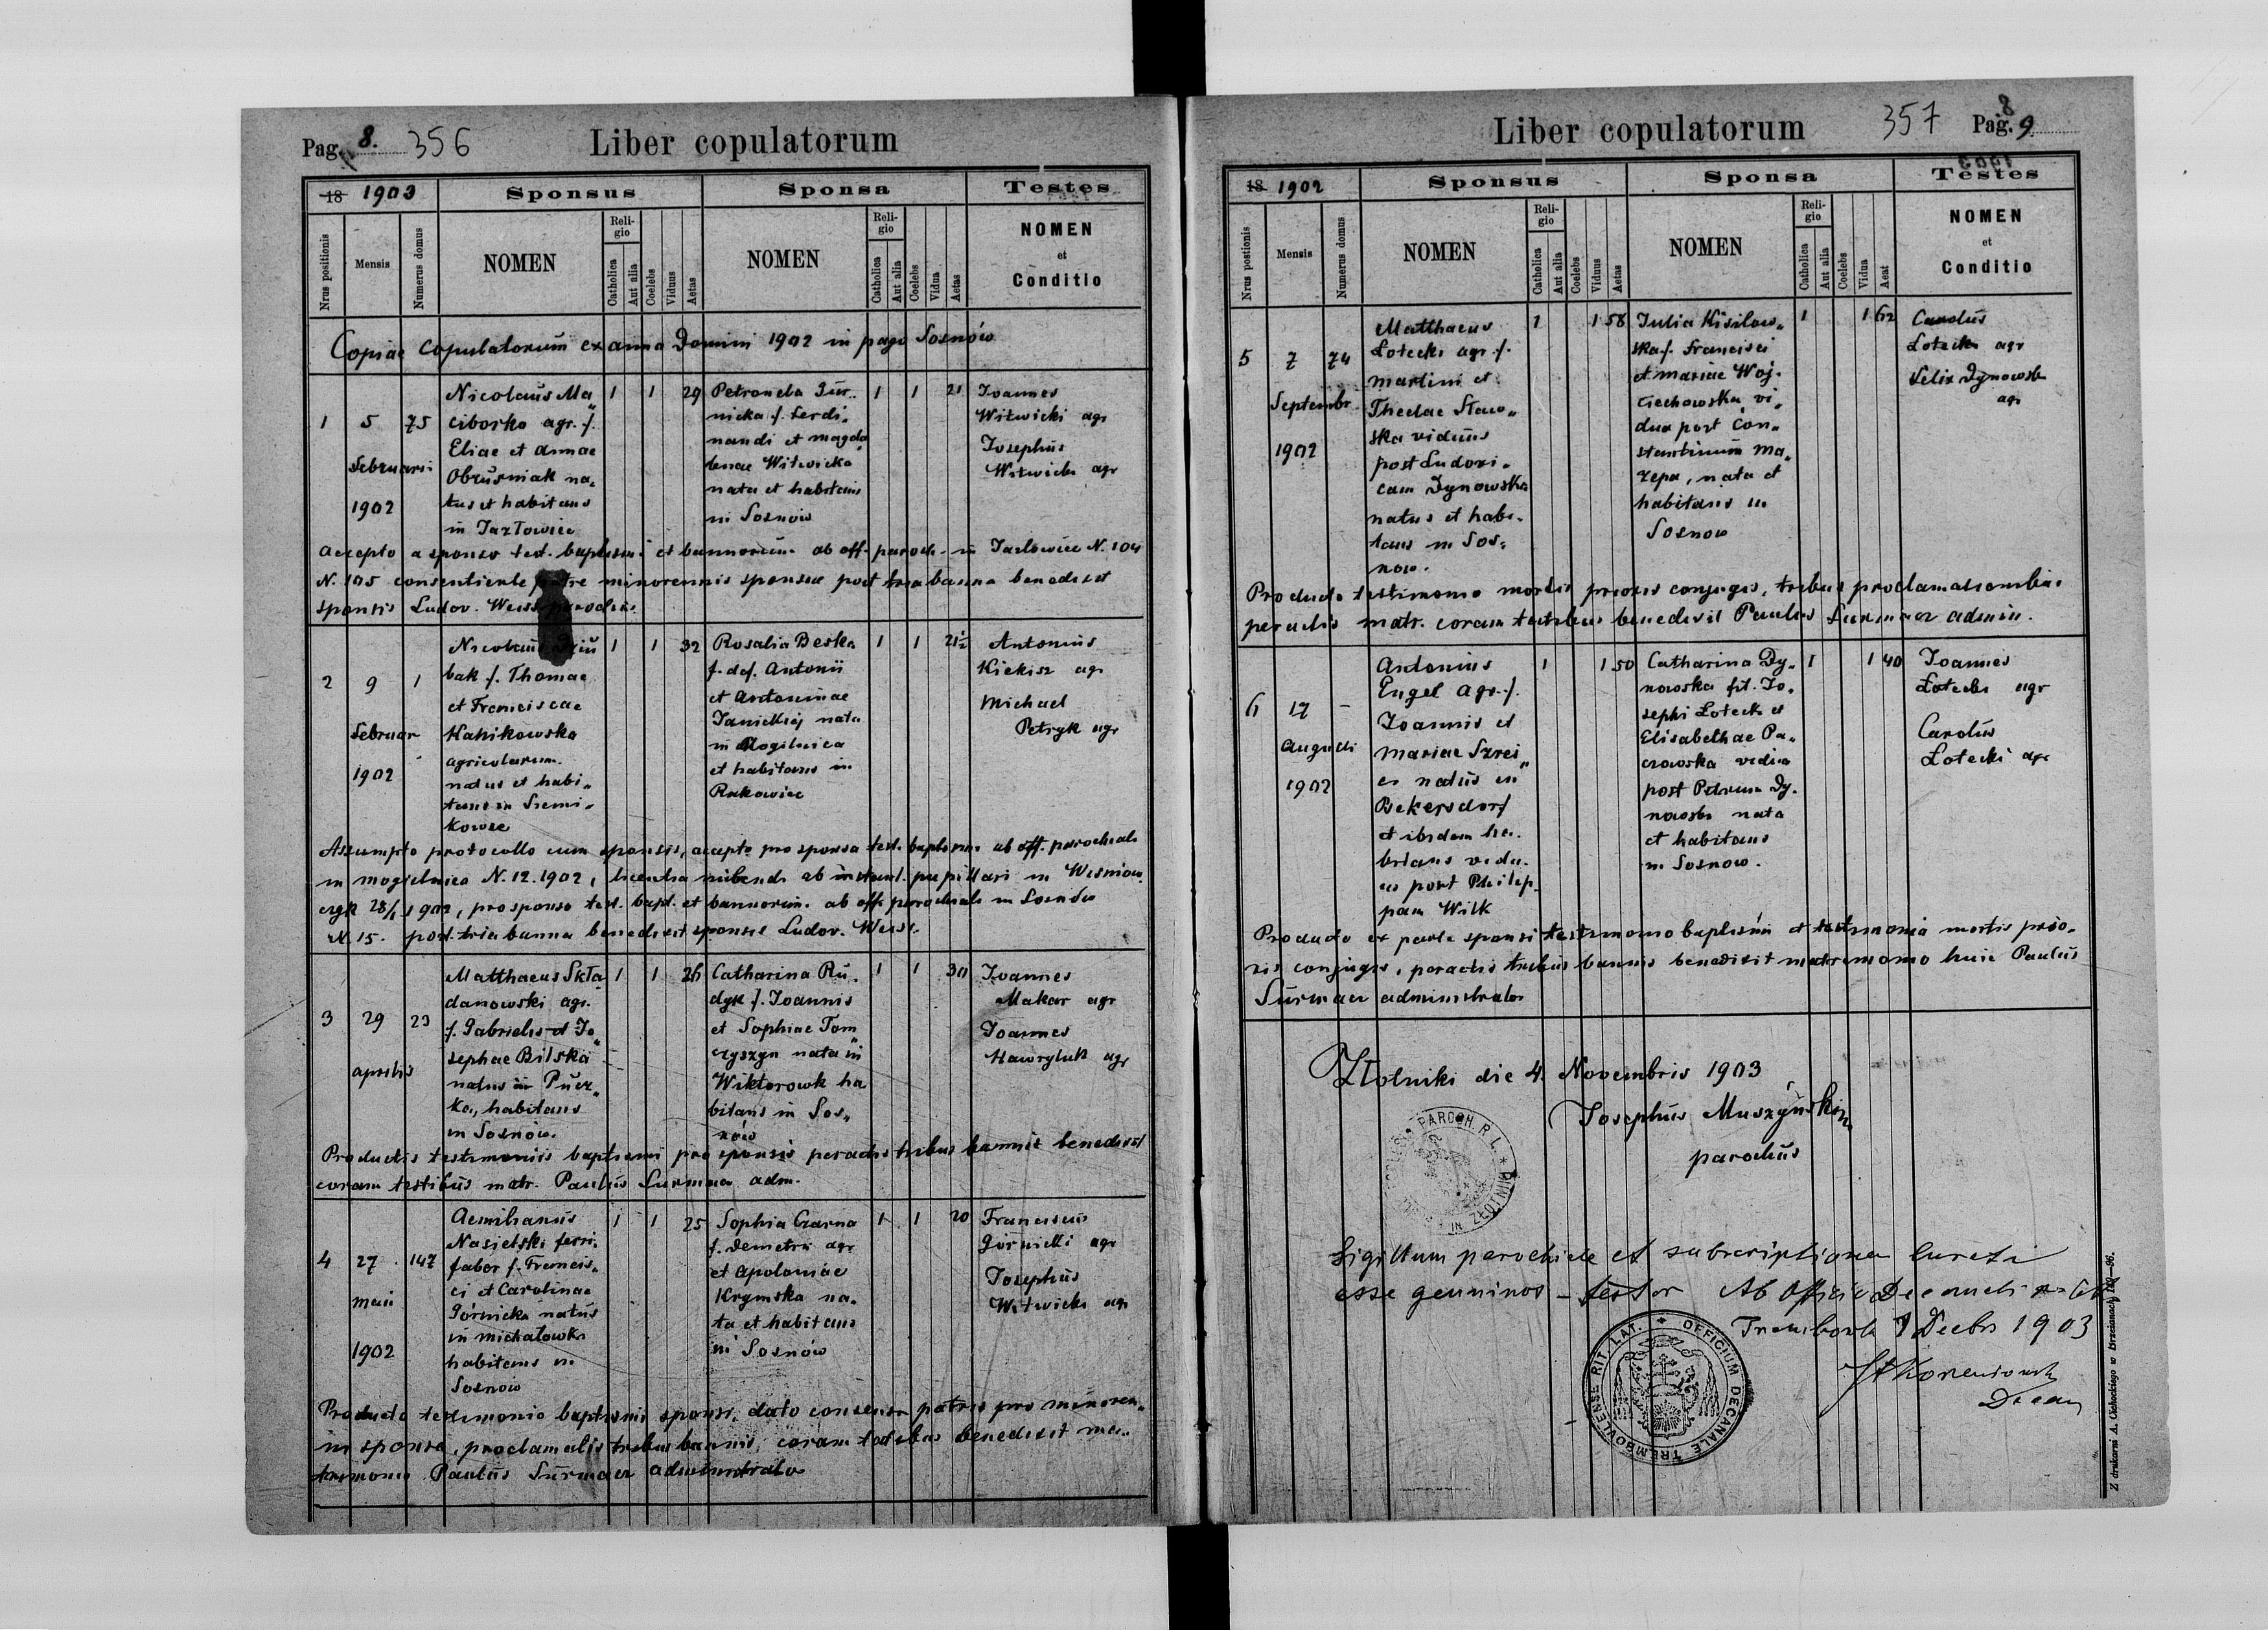 Pag. 8. 356 Liber copulatorum
18 1903 Sponsus Sponsa Testes
Nrus positionis Mensis Numerus domus NOMEN Religio Catholica Aut alia Coelebs Viduus Aetas NOMEN Religio Catholica Aut alia Coelebs Vidua Aetas NOMEN et Conditio
Copiae copulatorum ex anno Domini 1902 in pago Sosnów
1 5 75
Februarii
1902
Nicolaus Ma„
ciborko agr. f.
Eliae et Annae
Obruśniak na„
tus et habitans
in Jazłowiec
1 1 29
Petronela Gur„
nicka f. Ferdi„
nandi et Magda
lenae Witwicka
nata et habitans
in Sosnów
1 1 21
Joannes
Witwicki agr
Josephus
Witwicki agr
Accepto a sponso test. baptismi et bannorum ab off. paroch. in Jazlowiec N. 104
N. 105 consentiente patre minorennis sponsae post tria banna benedixit
sponsis Ludov. Weiss parochus.
2 9 1
Februar
1902
Nicolaus Dziu
bak f. Thomae
et Franciscae
Kanikowska
agricolarum
natus et habi„
tans in Siemi„
kowce
1 1 32
Rosalia Beska
f. def. Antonii
et Antoninae
Janickiej nata
in Mogilnica
et habitans in
Rakowiec
1 1 21½
Antonius
Kiekisz agr
Michael
Petryk agr
Assumpto protocollo cum sponsis, accepto pro sponsa test. baptismi ab off. parochiali
in Mogielnica N. 12. 1902, licentia nubendi ab instant. pupillari in Wisniow
czyk 28/1 1902, pro sponso test. bapt. et bannorum ab off. parochiali in Sosnów
N. 15. post tria banna benedixit sponsis Ludov. Weiss.
3 29 23
Aprilis
Matthaeus Skła
danowski agr.
f. Gabrielis et Jo„
sephae Bilska
natus in Puez„
ka, habitans
in Sosnów.
1 1 26
Catharina Ru„
dyk f. Joannis
et Sophiae Tom„
czyszyn nata in
Wiktorowk ha
bitans in Sos„
nów
1 1 30
Joannes
Makar agr
Joannes
Hawryluk agr
Productis testimoniis baptismi pro sponsis peractis tribus bannis benedixit
coram testibus matr. Paulus Surmacz adm.
4 27 147
Maii
1902
Aemilianus
Nasielski ferri„
faber f. Francis„
ci et Carolinae
Górnicka natus
in Michałowka
habitans in
Sosnow
1 1 25
Sophia Czarna
f. Demetri agr.
et Apoloniae
Krymska na„
ta et habitans
in Sosnów
1 1 20
Franciscus
Górnicki agr
Josephus
Witwicki agr
Producto testimonio baptismi sponsi, dato consensu patris pro minoren„
in sponsa, proclamatis tribus bannis, coram testibus benedixit ma„
trimonio Paulus Surmacz administrator
Liber copulatorum 357 Pag. 9. 8
18 1902 Sponsus Sponsa Testes
Nrus positionis Mensis Numerus domus NOMEN Religio Catholica Aut alia Coelebs Viduus Aetas NOMEN Religio Catholica Aut alia Coelebs Vidua Aeat NOMEN et Conditio
5 7 74
Septembr
1902
Matthaeus
Łotecki agr. f.
Martini et
Theclae Staw„
ska viduus
post Ludovi„
cam Dynowska
natus et habi„
tans in Sos„
now.
1 1 58
Julia Kisilow„
ska f. Francisci
et Mariae Woj„
ciechowska vi„
dua post Con„
stantinum Ma„
zepa, nata et
habitans in
Sosnow
1 1 62
Carolus
Łotecki agr
Felix Dynowski
agr
Producto testimonio mortis prioris conjugis, tribus proclamationibus
peractis matr. coram testibus benedixit Paulus Surmacz admin.
6 17 -
Augusti
1902
Antonius
Engel agr. f.
Joannis et
Mariae Szrei„
er natus in
Bekersdorf
et ibidem ha„
bitans vidu„
us post Philip„
pam Wilk
1 1 50
Catharina Dy„
nowska fil. Jo„
sephi Łotecki et
Elisabethae Pa„
czowska vidua
post Petrum Dy„
nowski nata
et habitans
in Sosnow.
1 1 40
Joannes
Łotecki agr
Carolus
Łotecki agr
Producto ex parte sponsi testimonio baptismi et testimonio mortis prio„
ris conjugis, peractis tribus bannis benedixit matrimonio huic Paulus
Surmacz administrator
Złotniki die 4. Novembris 1903
Josephus Muszyński
parochus
PAROCH. R. L. IN ZŁOTNIKI
Sigillum parochiae et subscriptionem Curati
esse genuinos - testor Ab Officio Decanali
Trembowla 7 Decbr 1903
OFFICIUM DECANALE TREMBOVLENSE RIT. LAT.
Decan
Z drukarni A. Cichockiego w Brzeżanach